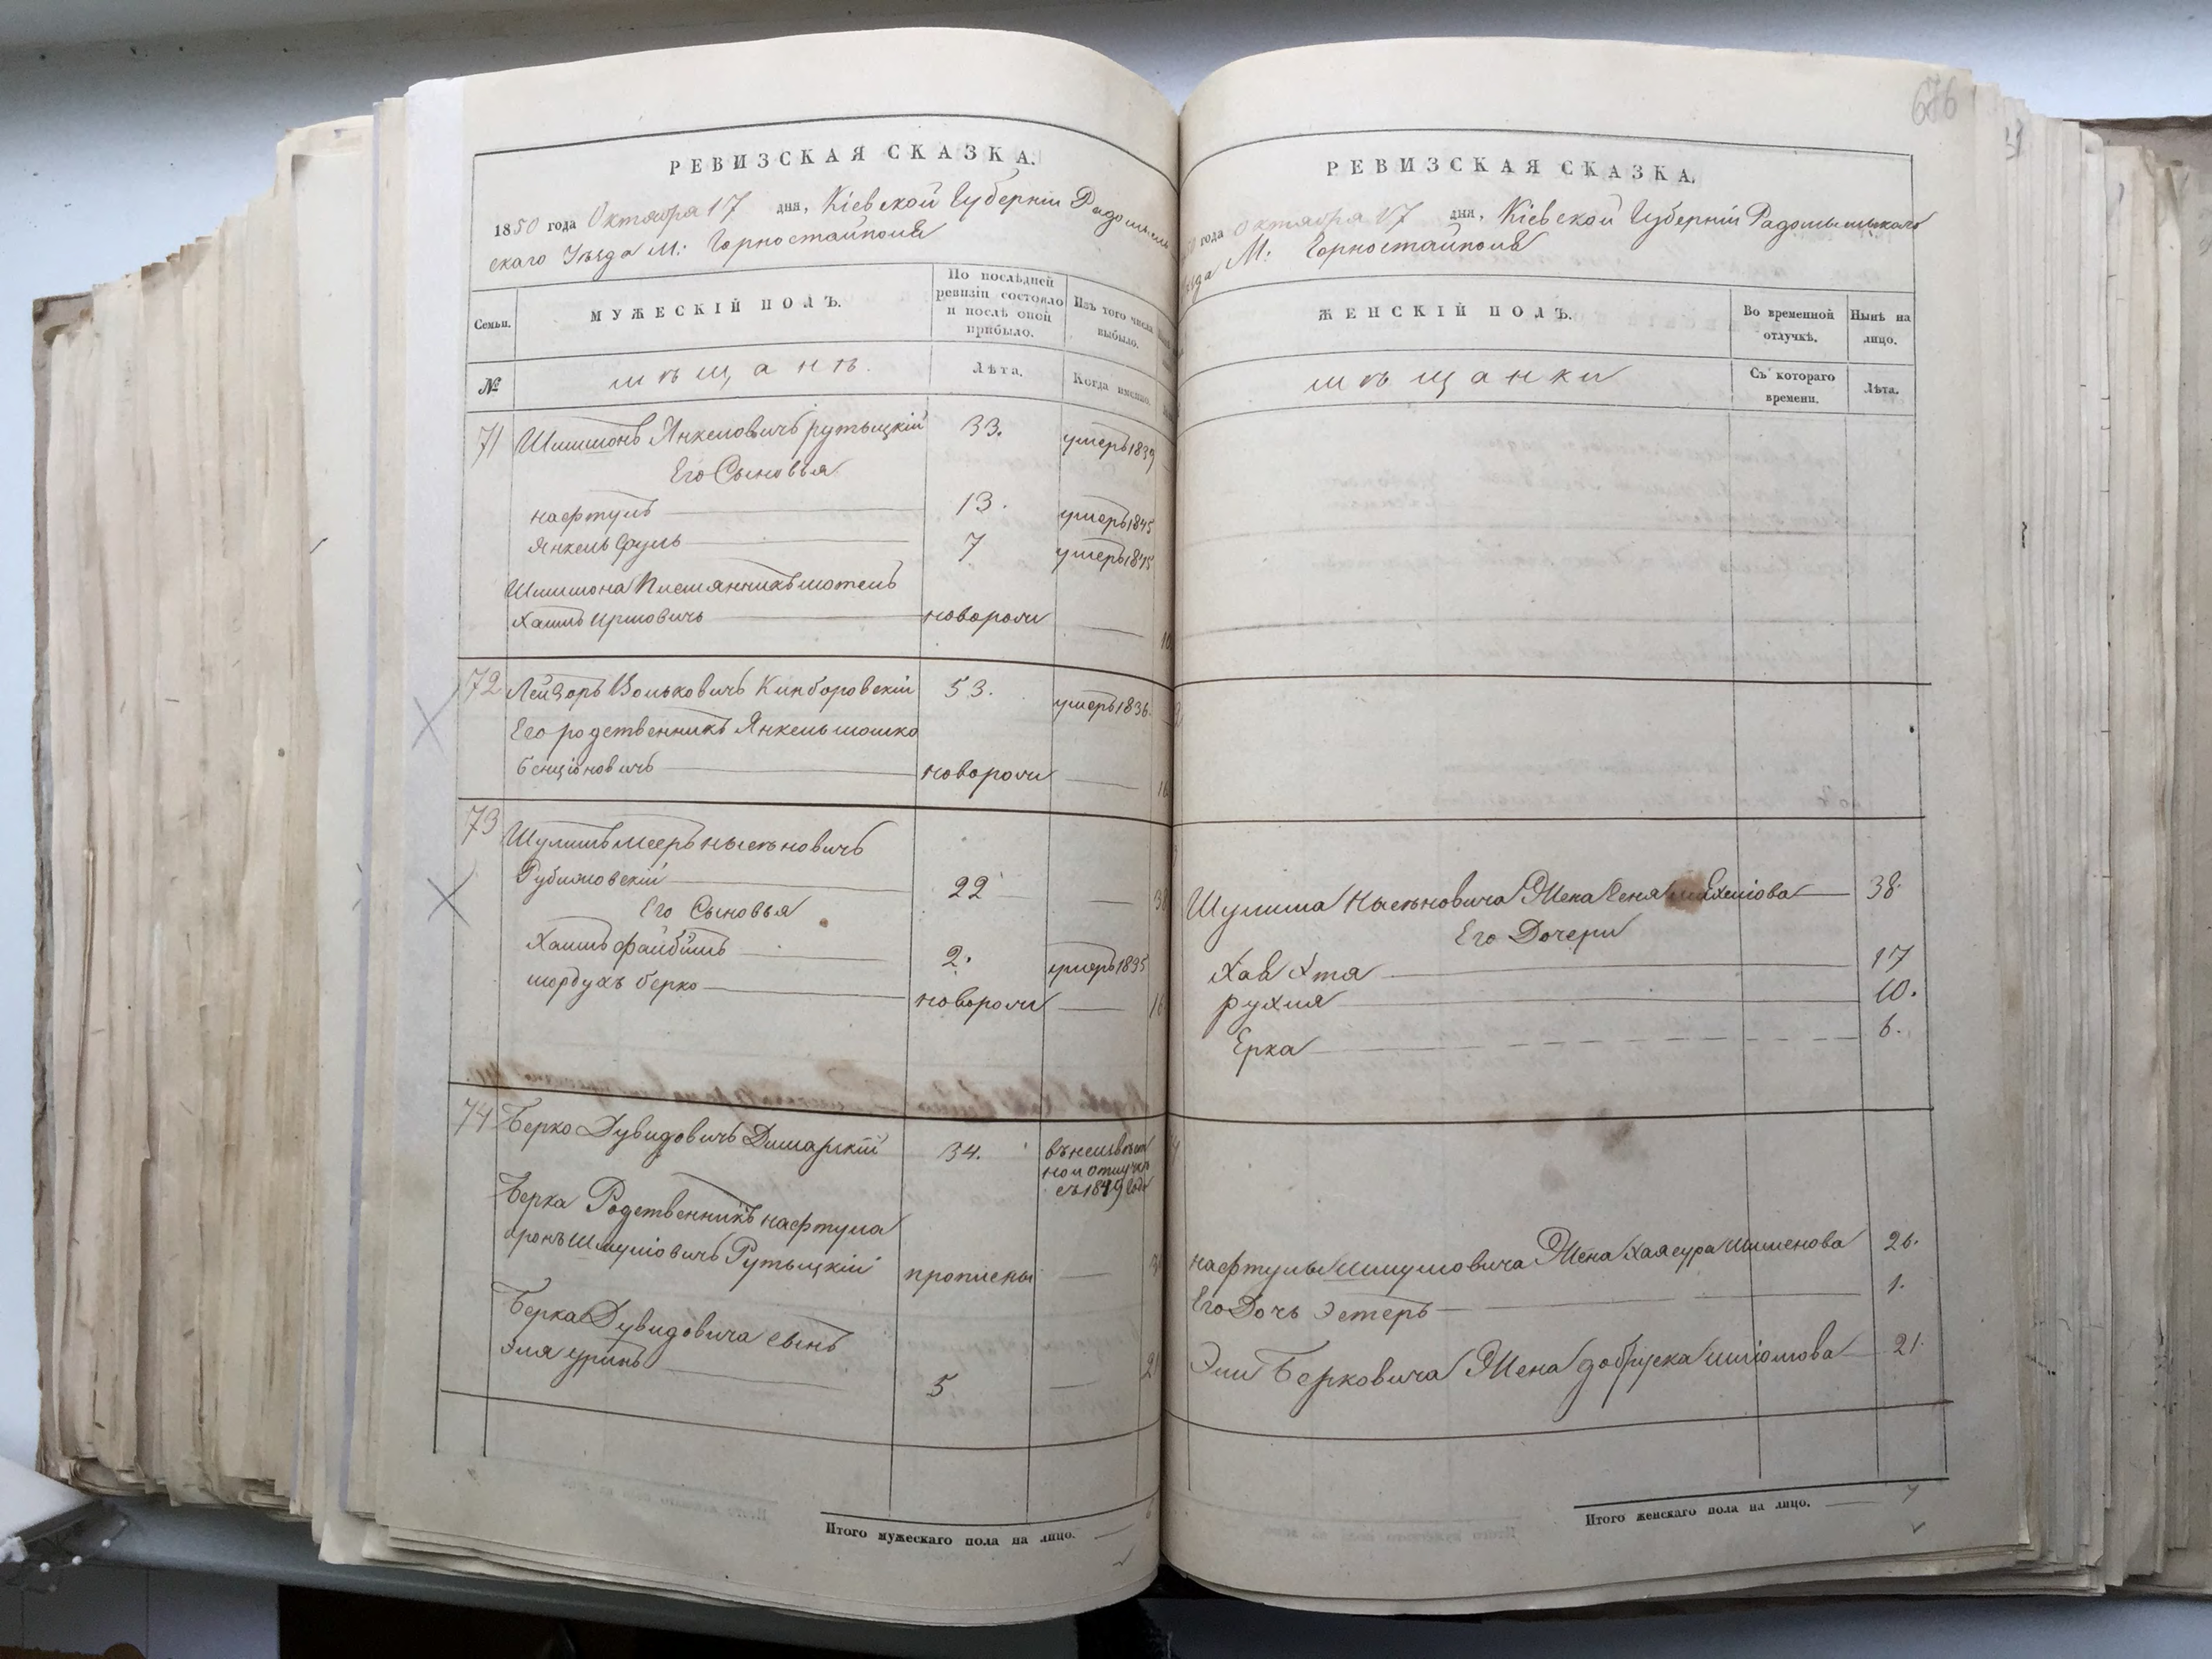 676
РЕВИЗСКАЯ СКАЗКА.
1850 года Октября 17 дня, Кіевской Губерніи Радомысль
скаго Уѣзда М: Горностайполя
Семьи.
МУЖЕСКІЙ ПОЛЪ.
По послѣдней ревизіи состояло и послѣ оной прибыло.
Изъ того числа выбыло.
№
мѣщанъ.
Лѣта.
Когда именно.
71 Шимшонъ Янкеловичъ рутыцкій 33. умеръ 1839
Его Сыновья
нафтуль 13. умеръ 1845
Янкель Сруль 7 умеръ 1845
Шимшона Племянникъ мотель
Хаимъ Иршовичъ новорож 10
72 Лейзоръ Вольковичъ Кинборовскій 53. умеръ 1836
Его родственникъ Янкель мошко
бенціоновичъ новорож 16
73 Шулимъ мееръ нысѣновичъ
Рубиновскій 22 38
Его Сыновья
Хаимъ файбишъ 2. умеръ 1835
мордухъ берко новорож 16
74 Берко Дувидовичъ Дымарскій 34. въ неизвѣст
ной отлучкѣ
съ 1849 года
Берка Родственникъ нафтула
аронъ Шмуліовичъ Рутыцкій прописны
Берка Дувидовича сынъ
Эля Уринъ 5 2
Итого мужескаго пола на лицо.
РЕВИЗСКАЯ СКАЗКА.
года Октября 17 дня, Кіевской Губерніи Радомысльскаго
М: Горностайполя
ЖЕНСКІЙ ПОЛЪ.
Во временной отлучкѣ.
Нынѣ на лицо.
мѣщанки
Съ котораго времени.
Лѣта.
Шулима Нысѣновича Жена Сеня 38.
Его Дочери
Хав Хтя 17
рухля 10.
Ерка 6.
нафтулы Шмуловича Жена Хая сура Шименова 26.
Его Дочь Эстеръ 1.
Эли Берковича Жена добруска шліомова 21.
Итого женскаго пола на лицо. 7